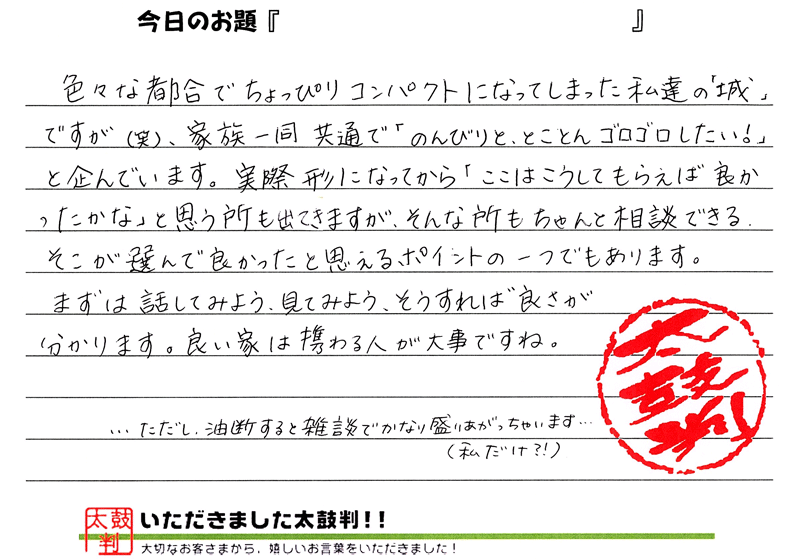 今日のお題『　　　　　　　　　　』
色々な都合でちょっぴりコンパクトになってしまった私達の「城」
ですが(笑)、家族一同共通で「のんびりと、とことんゴロゴロしたい!」
と企んでいます。実際形になってから「ここはこうしてもらえば良か
ったかな」と思う所も出てきますが、そんな所もちゃんと相談できる、
そこが選んで良かったと思えるポイントの一つでもあります。
まずは話してみよう、見てみよう、そうすれば良さが
分かります。良い家は携わる人が大事ですね。
…ただし、油断すると雑談でかなり盛りあがっちゃいます…
(私だけ?!)
太鼓判
太鼓判
いただきました太鼓判!!
大切なお客さまから、嬉しいお言葉をいただきました!